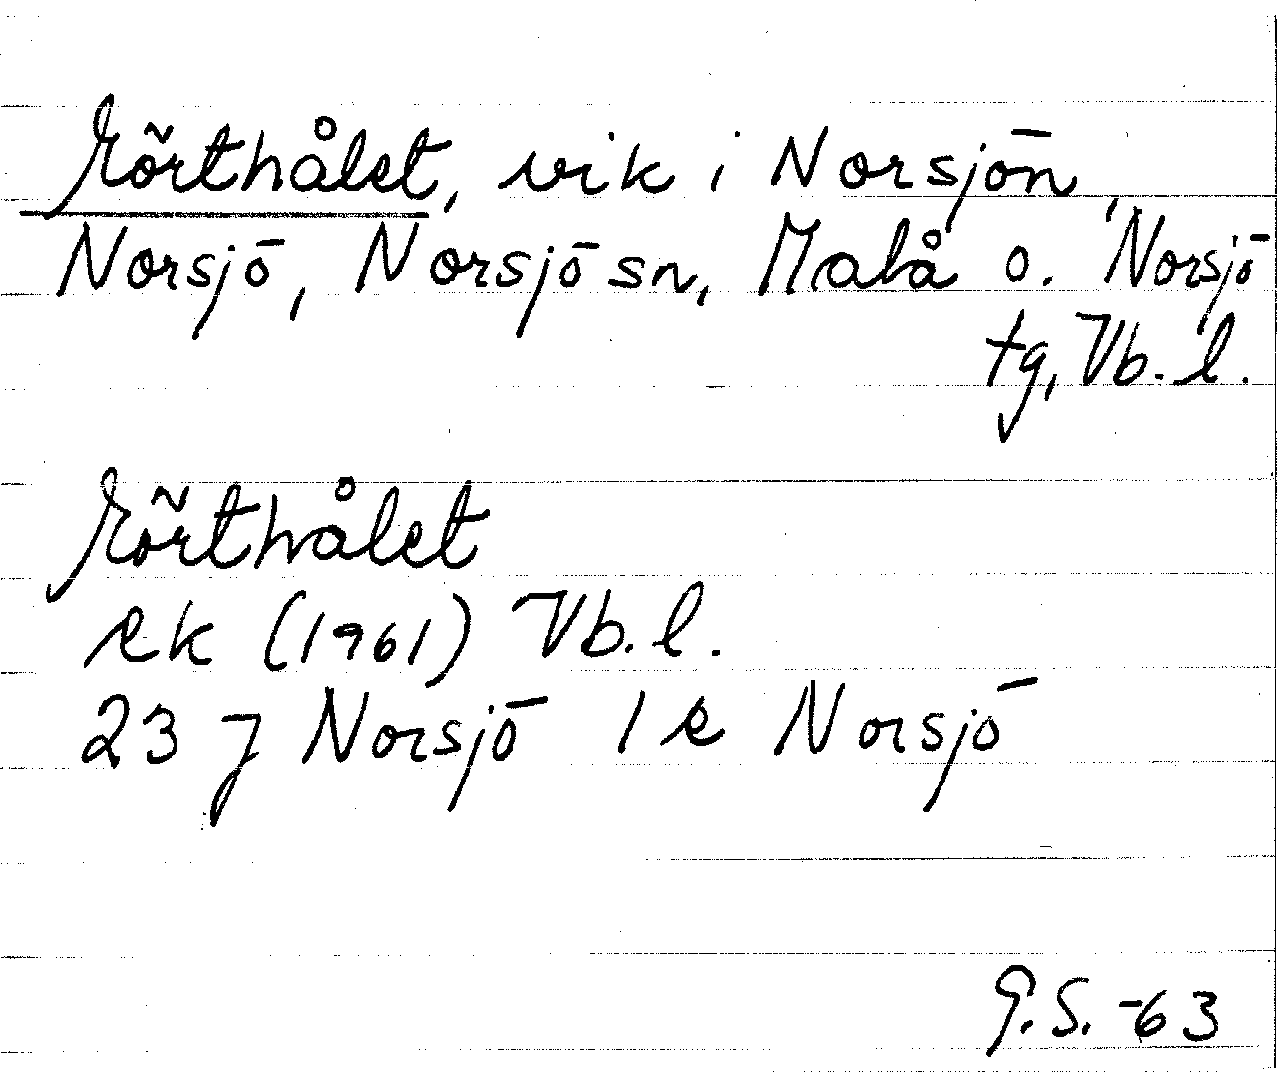 vik i Norsjön,
Norsjö, Norsjö sn, Malå o. Norsjö
tg, Vb. l.
ek (1961) Vb. l.
23 J Norsjö 1 e Norsjö
G.S. -63